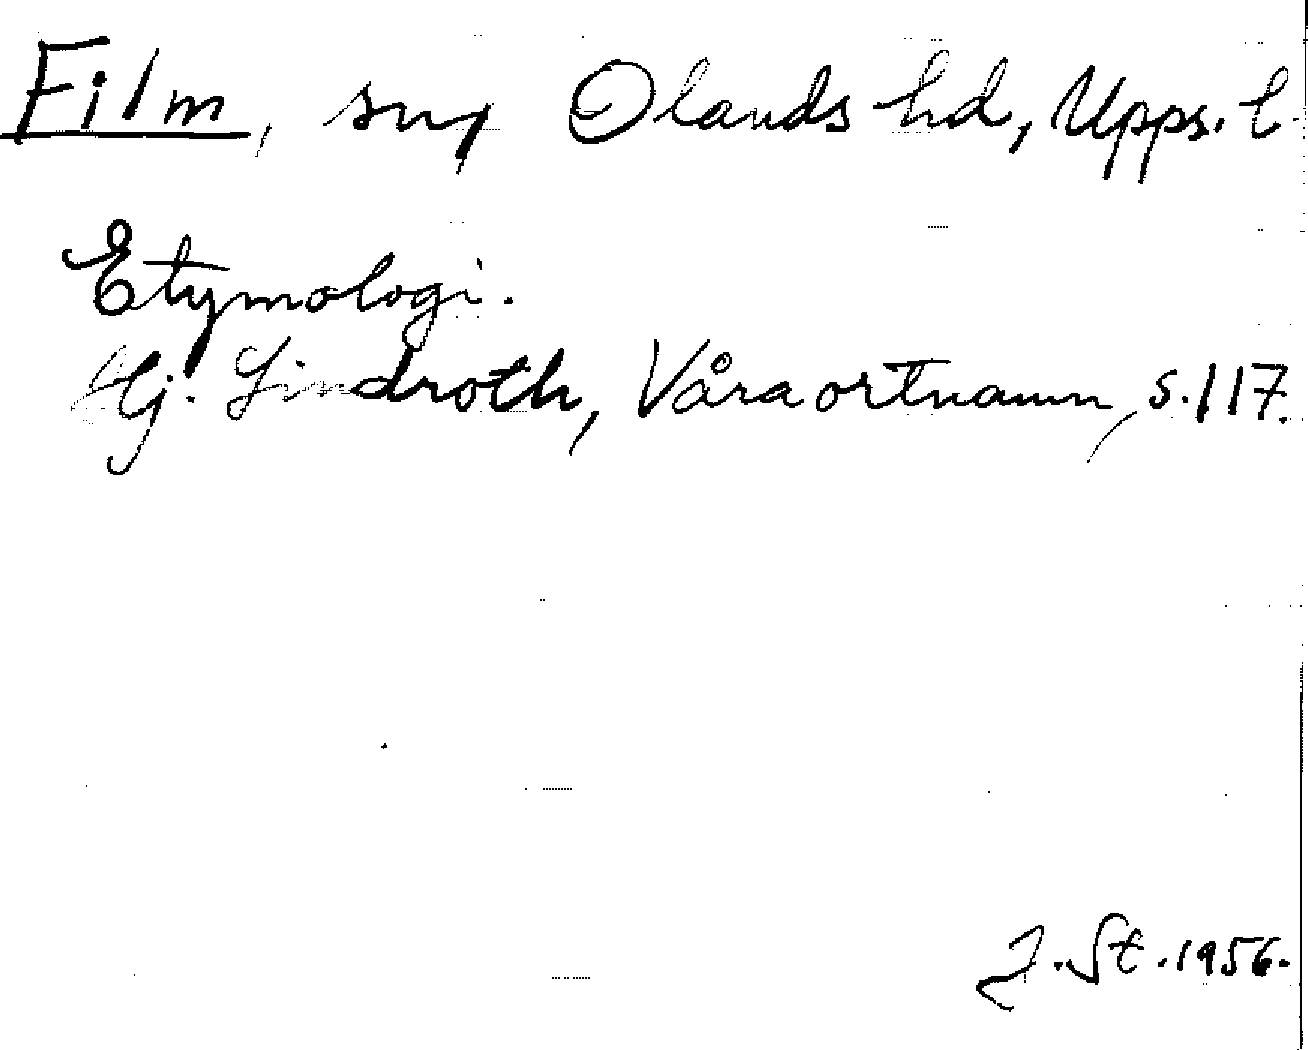 Film, sn, Olands hd, Upps. l
Etymologi.
Hj. Lindroth, Våra ortnamn, s. 117.
J. St. 1956.